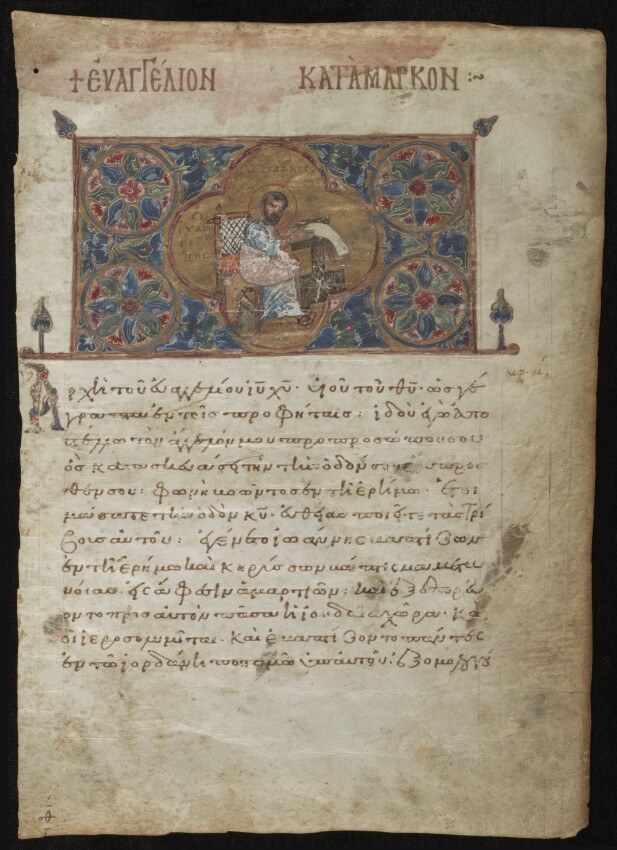 + ΕΥΑΓΓΕΛΙΟΝ ΚΑΤΑ ΜΑΡΚΟΝ :~
Ἀρχὴ τοῦ εὐαγγελίου ἰῦ χῦ· υἱοῦ τοῦ θῦ· ὡς γέ
γραπται ἐν τοῖς προφήταις: ἰδοὺ ἐγὼ ἀπο
στέλλω τὸν ἄγγελόν μου πρὸ προσώπου σου·
ὃς κατασκευάσει τὴν ὁδόν σου ἔμπροσ
θέν σου: φωνὴ βοῶντος ἐν τῇ ἐρήμῳ· ἑτοι
μάσατε τὴν ὁδὸν κῦ· εὐθείας ποιεῖτε τὰς τρί
βους αὐτοῦ: ἐγένετο ἰωάννης βαπτίζων
ἐν τῇ ἐρήμῳ καὶ κηρύσσων βάπτισμα μετα
νοίας εἰς ἄφεσιν ἁμαρτιῶν: καὶ ἐξεπορεύ
οντο πρὸς αὐτὸν πᾶσα ἡ ἰουδαία χώρα· καὶ
οἱ ἱεροσολυμῖται· καὶ ἐβαπτίζοντο πάντες
ἐν τῷ ἰορδάνῃ ποταμῷ ὑπ' αὐτοῦ: ἐξομολογού